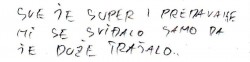 SVE JE SUPER I PREDAVANJE
MI SE SVIĐALO SAMO DA
JE DUŽE TRAJALO..